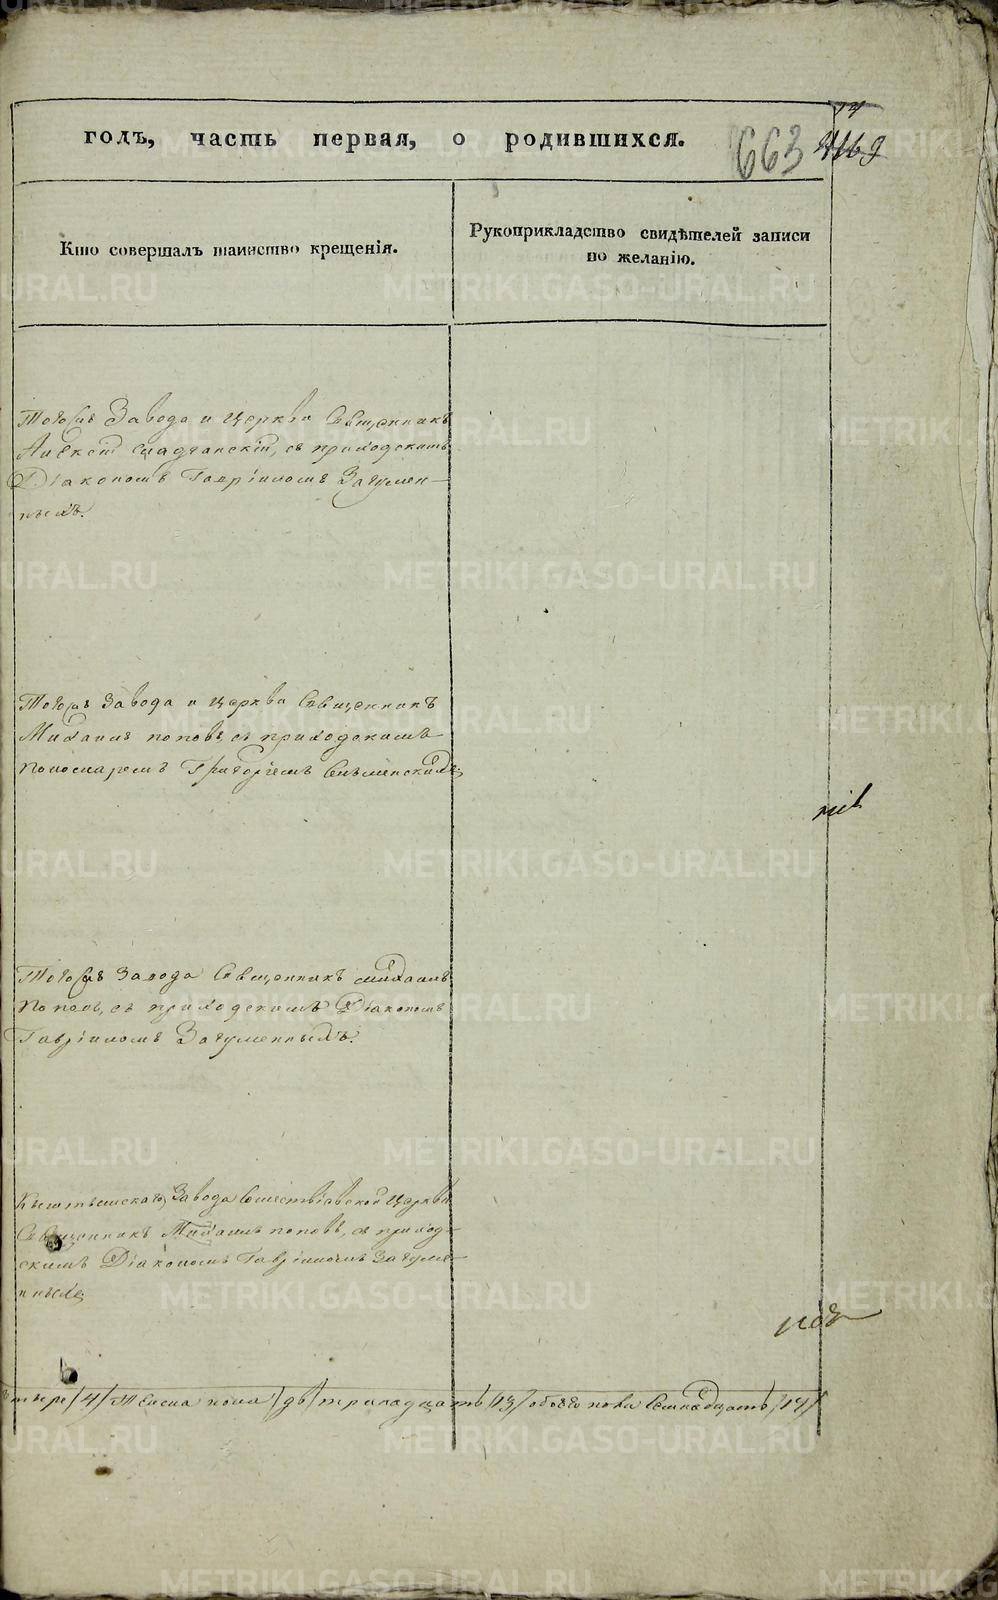 годъ, часть первая, о родившихся.
663
Кто совершалъ таинство крещенія.
Рукоприкладство свидѣтелей записи
по желанію.
Тогожъ Завода и Церкви Священникъ
съ приходскимъ
Діакономъ Гавріиломъ Загумен-
нымъ.
Тогожъ Завода и Церкви Священникъ
Михаилъ Поповъ, съ приходскимъ
Пономаремъ Григорiемъ
Тогожъ Завода Священникъ Михаилъ
Поповъ, съ приходскимъ Діакономъ
Гавріиломъ Загуменнымъ.
Кыштымскаго Завода Сошествіевской Церкви
Священникъ Михаилъ Поповъ, съ приход-
скимъ Діакономъ Гавріиломъ Загуме-
ннымъ
/4/ Женска пола тринадцать /13/ обоего пола Семнадцать /17/
METRIKI.GASO-URAL.RU